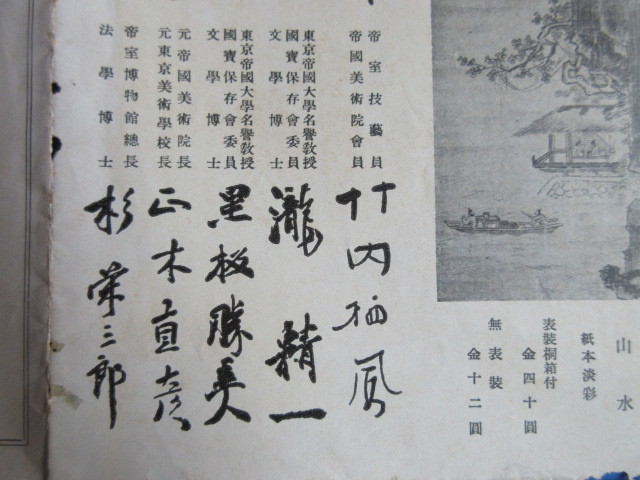 山水
紙本淡彩
表裝桐箱付
金四十圓
無表裝
金十二圓
帝室技藝員
帝國美術院會員
竹内栖鳳
東京帝國大學名譽敎授
國寶保存會委員
文學博士
瀧精一
東京帝國大學名譽敎授
國寶保存會委員
文學博士
黑板勝美
元帝國美術院長
元東京美術學校長
正木直彦
帝室博物館總長
法學博士
杉榮三郎